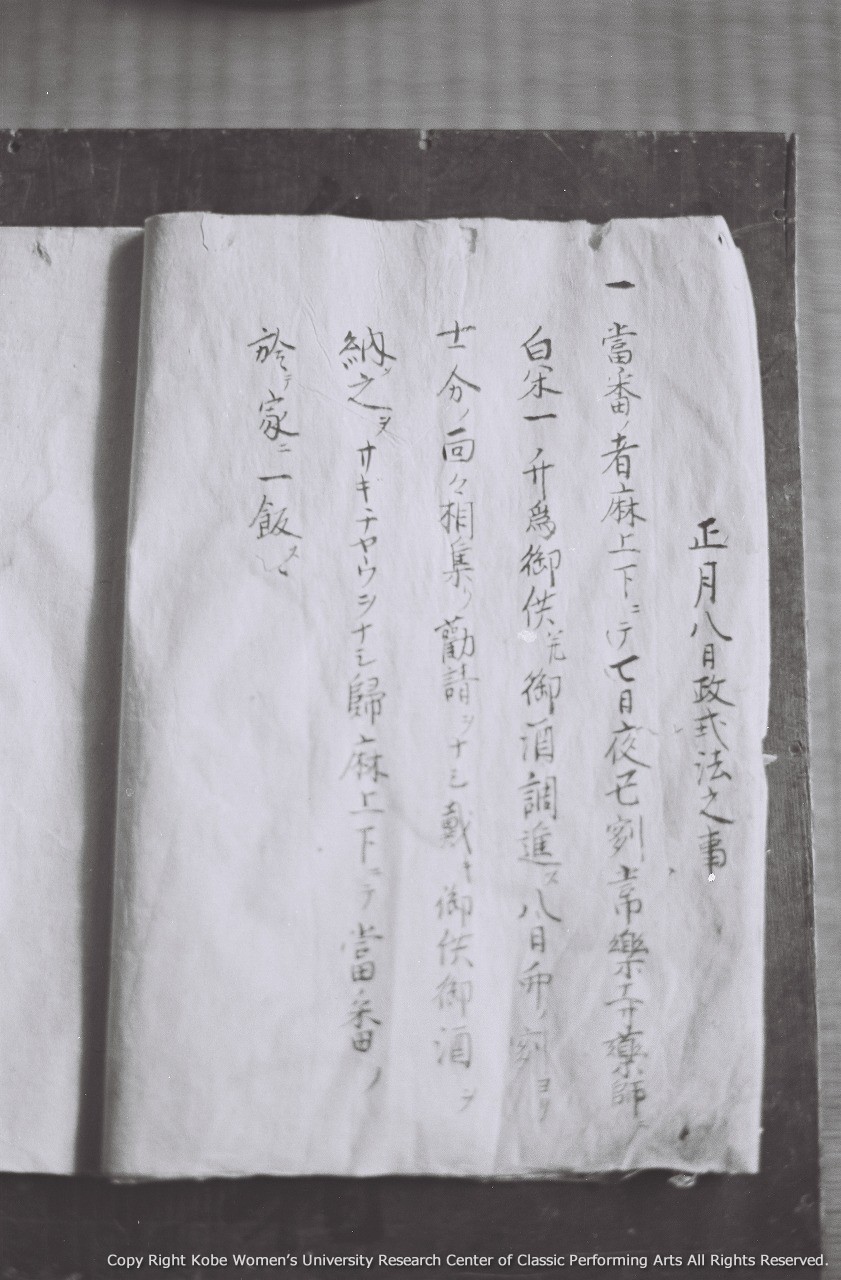 正月八日政式法之事
一 當番ノ者麻上下ニテ七日夜 刻常樂寺藥師ニ
白米一ノ升爲御供 御酒調進ス八日卯ノ刻ヨリ
士分ノ面々相集リ勸請ヲナシ戴キ御供御酒ヲ
納ツ之ヲサギチヤウヲナシ歸麻上下ニテ當番ノ
於テ家ニ一飯ス
Copy Right Kobe Women's University Research Center of Classic Performing Arts All Rights Reserved.